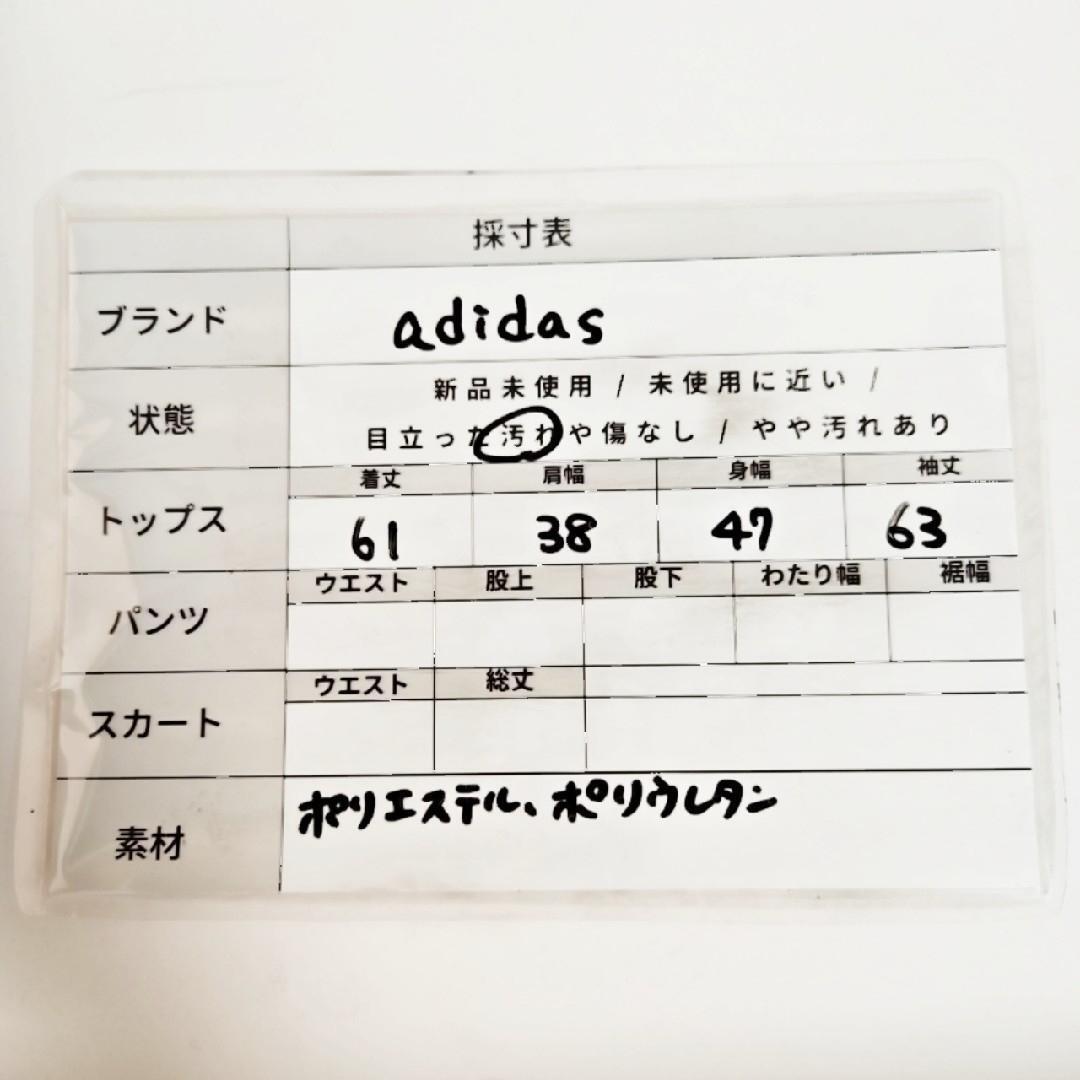 採寸表
ブランド adidas
状態 新品未使用 / 未使用に近い /
目立った汚れや傷なし / やや汚れあり
着丈 肩幅 身幅 袖丈
トップス 61 38 47 63
ウエスト 股上 股下 わたり幅 裾幅
パンツ
ウエスト 総丈
スカート
素材 ポリエステル、ポリウレタン